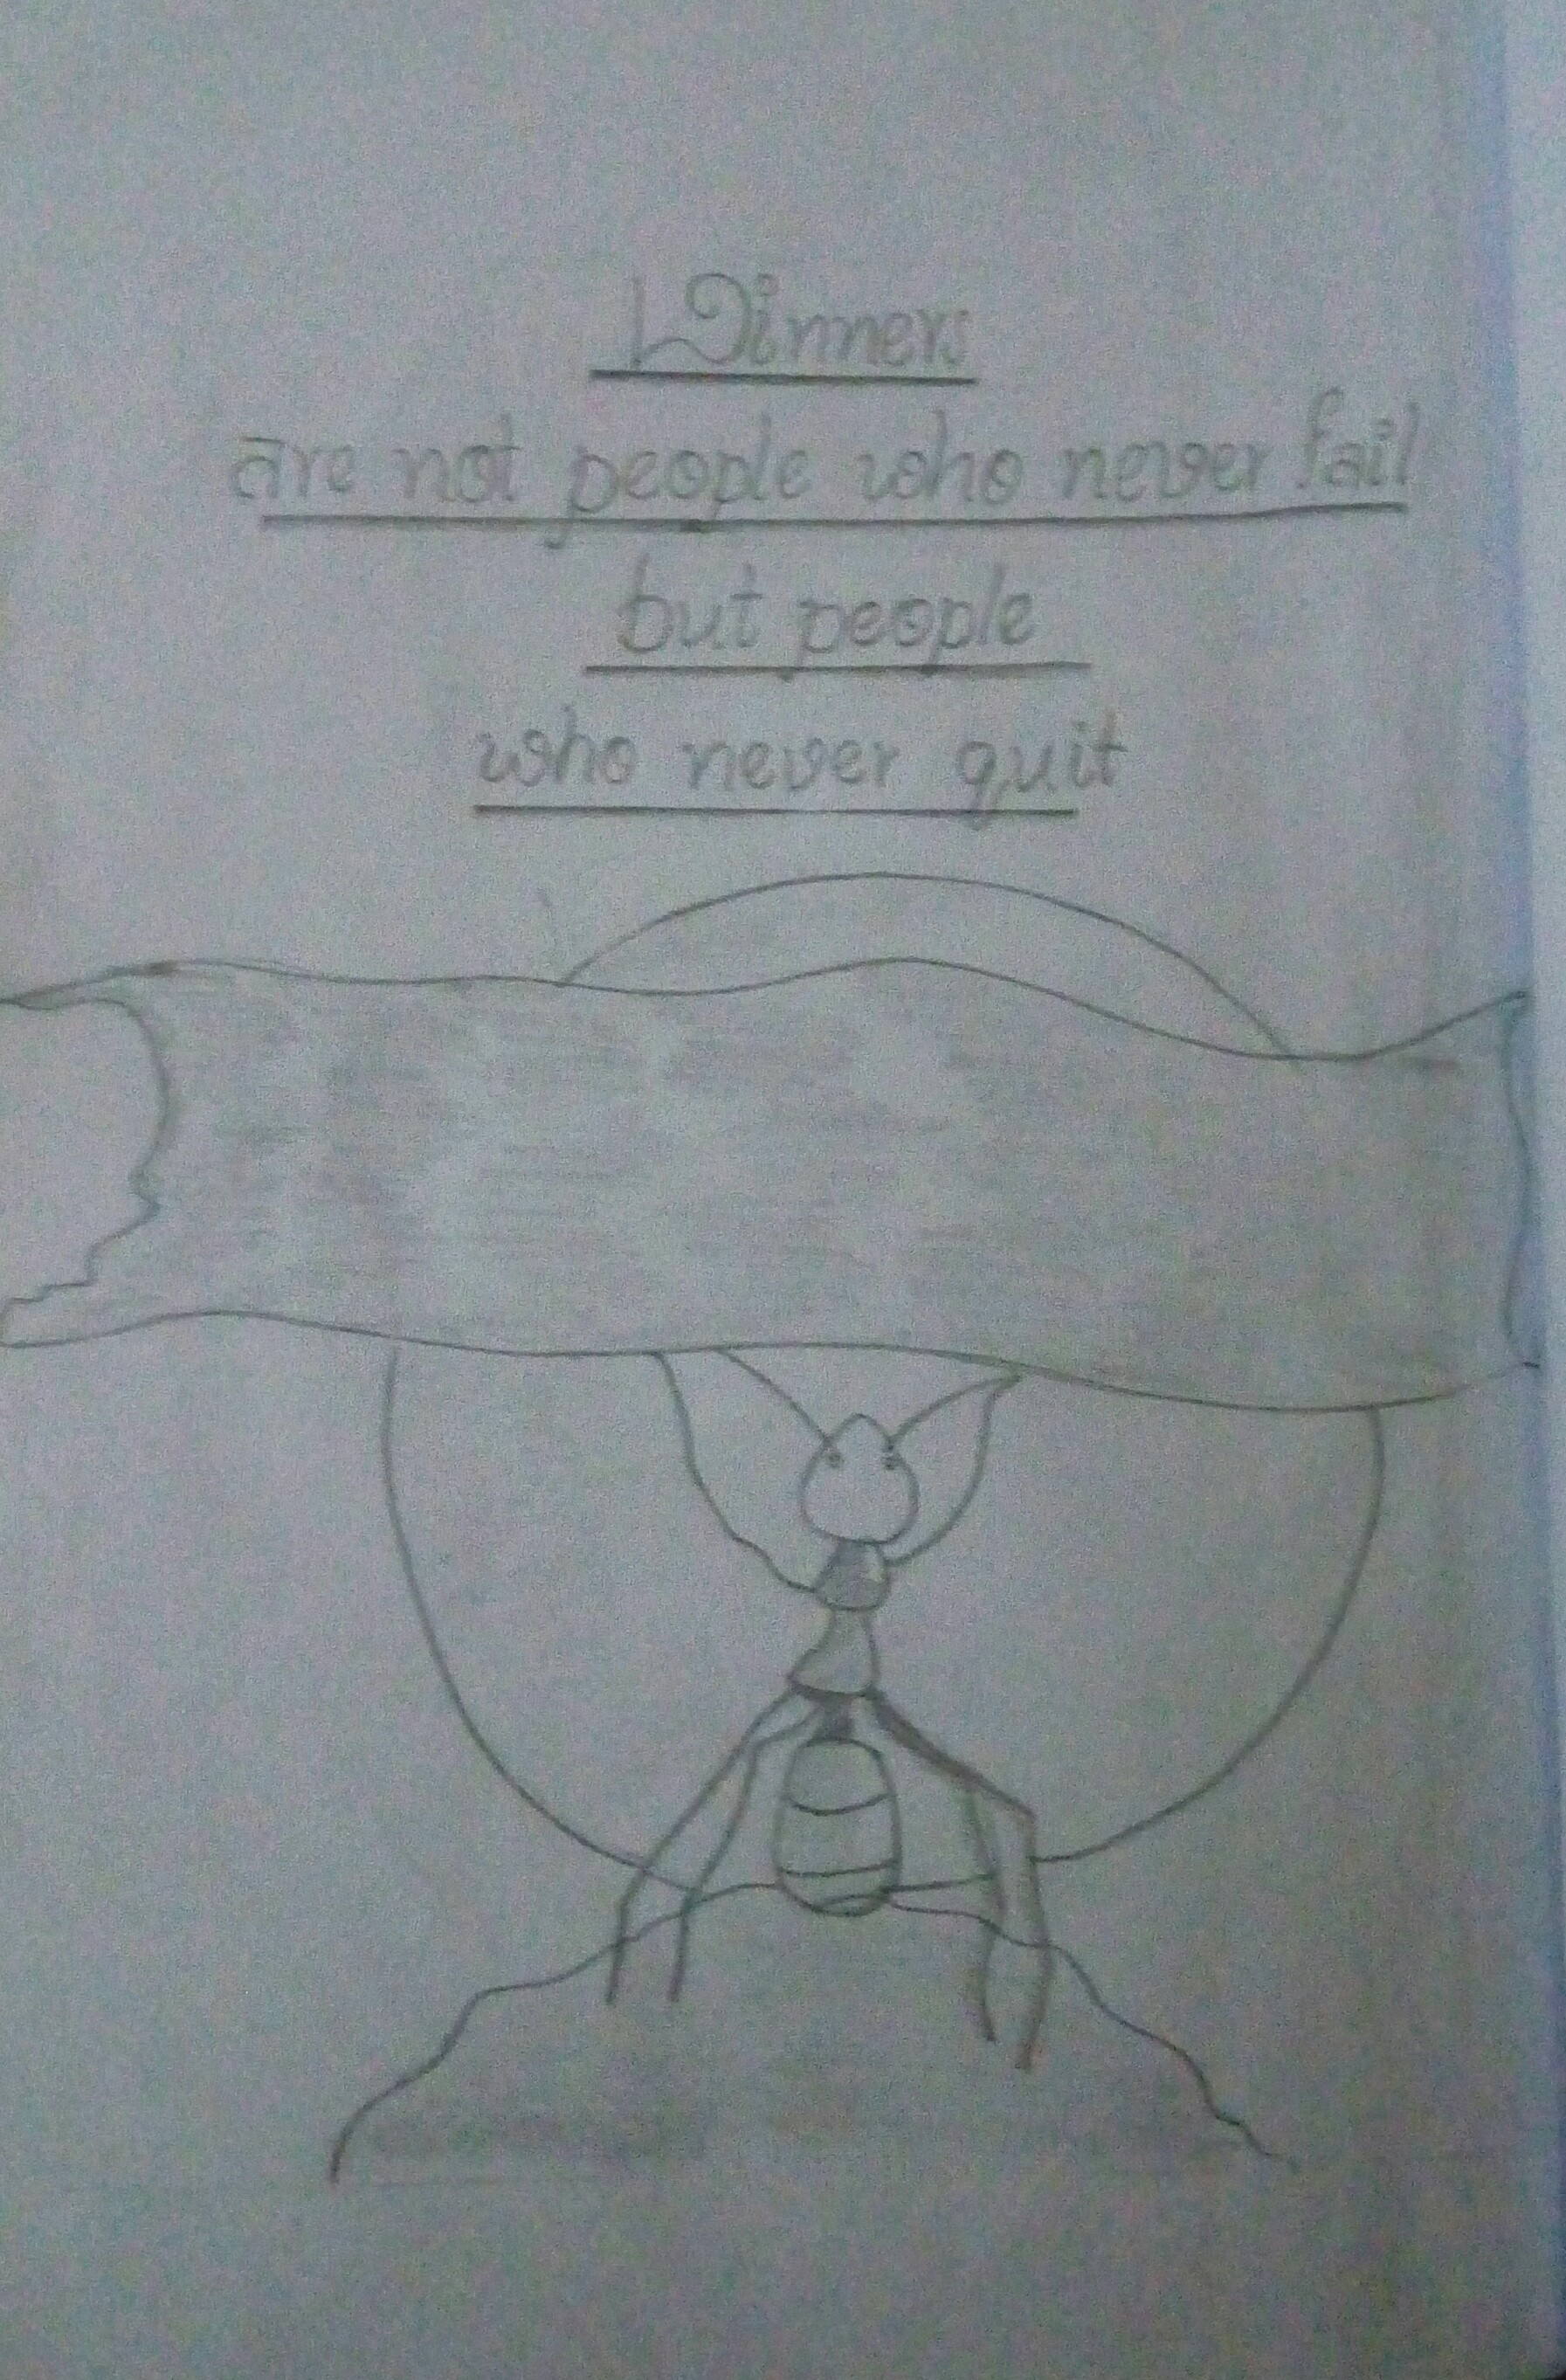 Winners
are not people who never fail
but people
who never quit